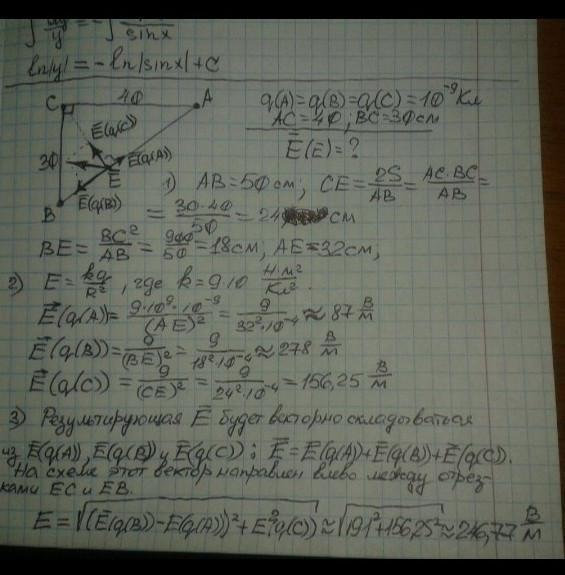 ∫ dy/y = -∫ /sinx
ln|y| = -ln|sinx| + C
C 40 A
q(A)=q(B)=q(C)=10⁻⁹ Кл
AC=40; BC=30см
E⃗(E)=?
E⃗(q(C))
30 E⃗(q(A))
E
E⃗(q(B))
B
1) AB=50см; CE= 2S/AB = AC·BC/AB =
= 30·40/50 = 24 см
BE= BC²/AB = 900/50 = 18см, AE=32см;
2) E= kq/R², где k=9·10 Н·м²/Кл².
E⃗(q(A))= 9·10⁹·10⁻⁹/(AE)² = 9/32²·10⁻⁴ ≈ 87 В/м
E⃗(q(B))= 9/(BE)² = 9/18²·10⁻⁴ ≈ 278 В/м
E⃗(q(C)) = 9/(CE)² = 9/24²·10⁻⁴ = 156,25 В/м
3) Результирующая E⃗ будет векторно складываться
из E⃗(q(A)), E⃗(q(B)) и E⃗(q(C)): E⃗=E⃗(q(A))+E⃗(q(B))+E⃗(q(C)).
На схеме этот вектор направлен влево между отрез-
ками EC и EB.
E = √((E(q(B))-E(q(A)))²+E²(q(C))) ≈ √191²+156,25² ≈ 246,77 В/м